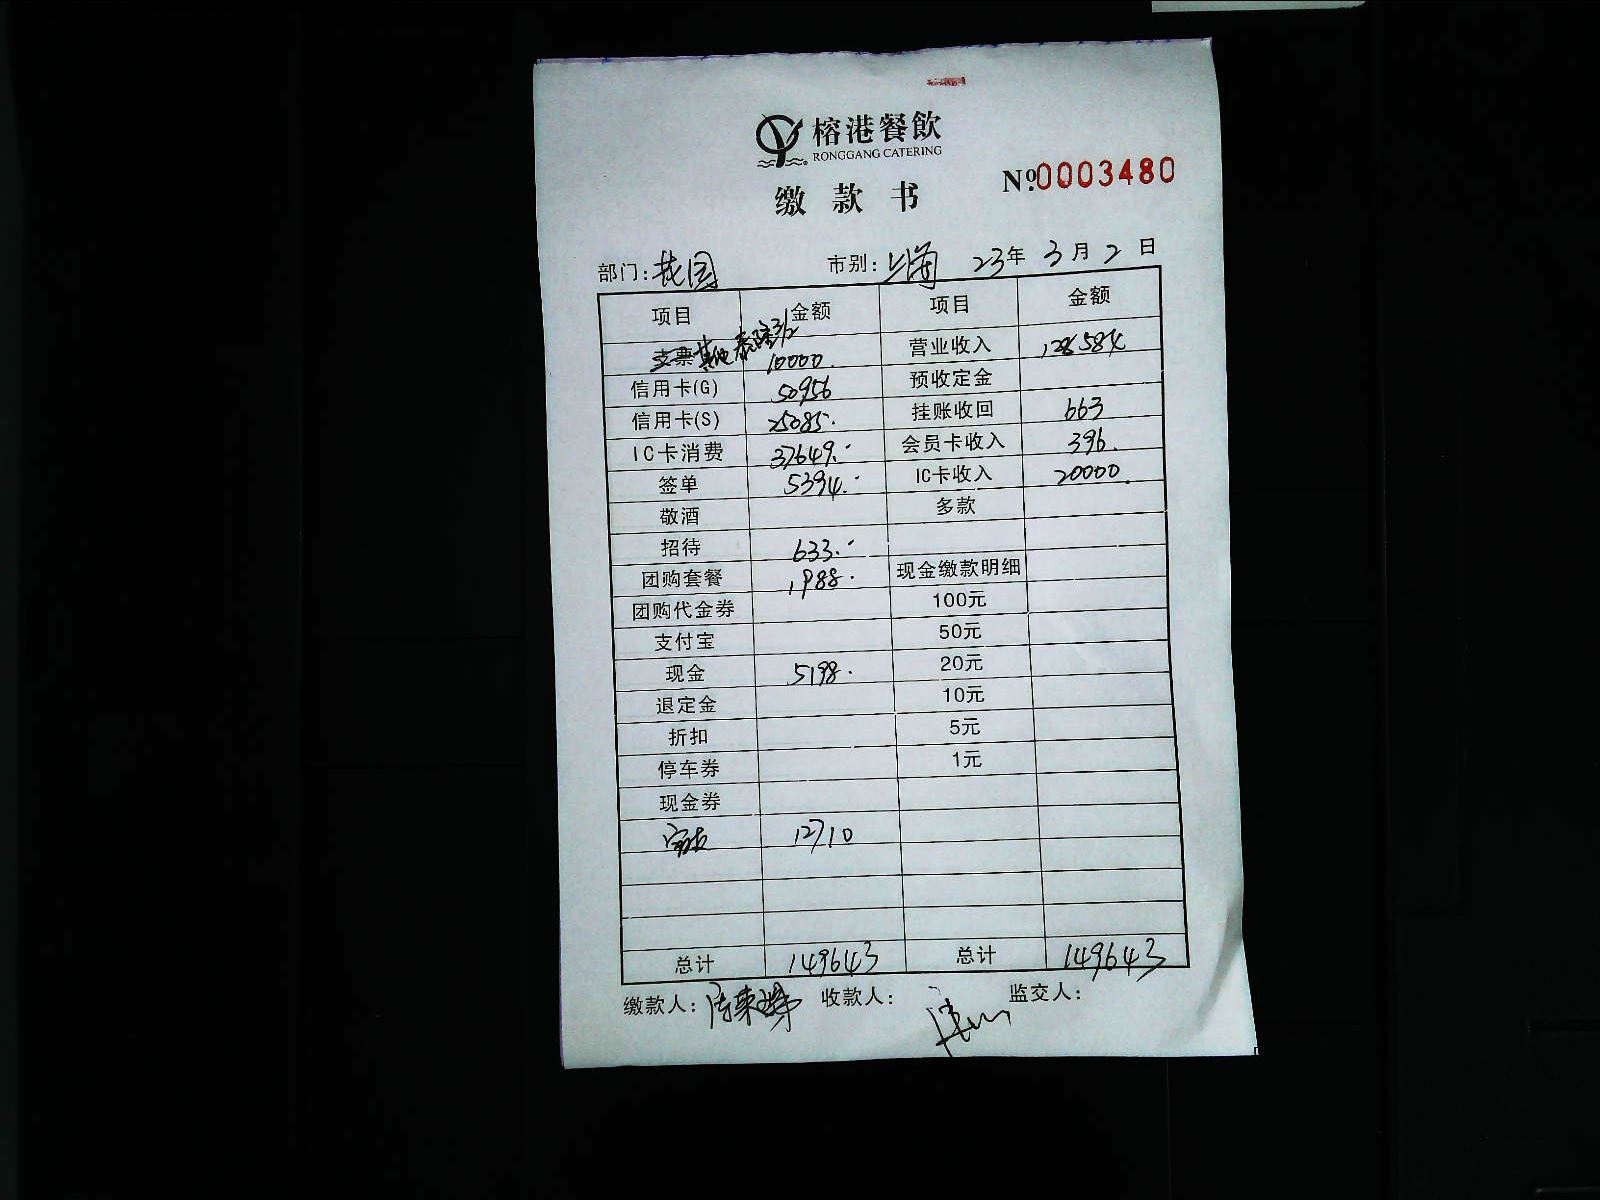 榕港餐飲
RONGGANG CATERING
缴款书
№0003480
部门: 市别: 上海 23年 3月 2日
项目 金额 项目 金额
支票 其他 10000. 营业收入 128584
信用卡(G) 50956 预收定金
信用卡(S) 25085. 挂账收回 663
IC卡消费 37649. 会员卡收入 396.
签单 5394. IC卡收入 20000.
敬酒 多款
招待 633.
团购套餐 1988. 现金缴款明细
团购代金券 100元
支付宝 50元
现金 5198. 20元
退定金 10元
折扣 5元
停车券 1元
现金券
12710
总计 149643 总计 149643
缴款人: 收款人: 监交人: